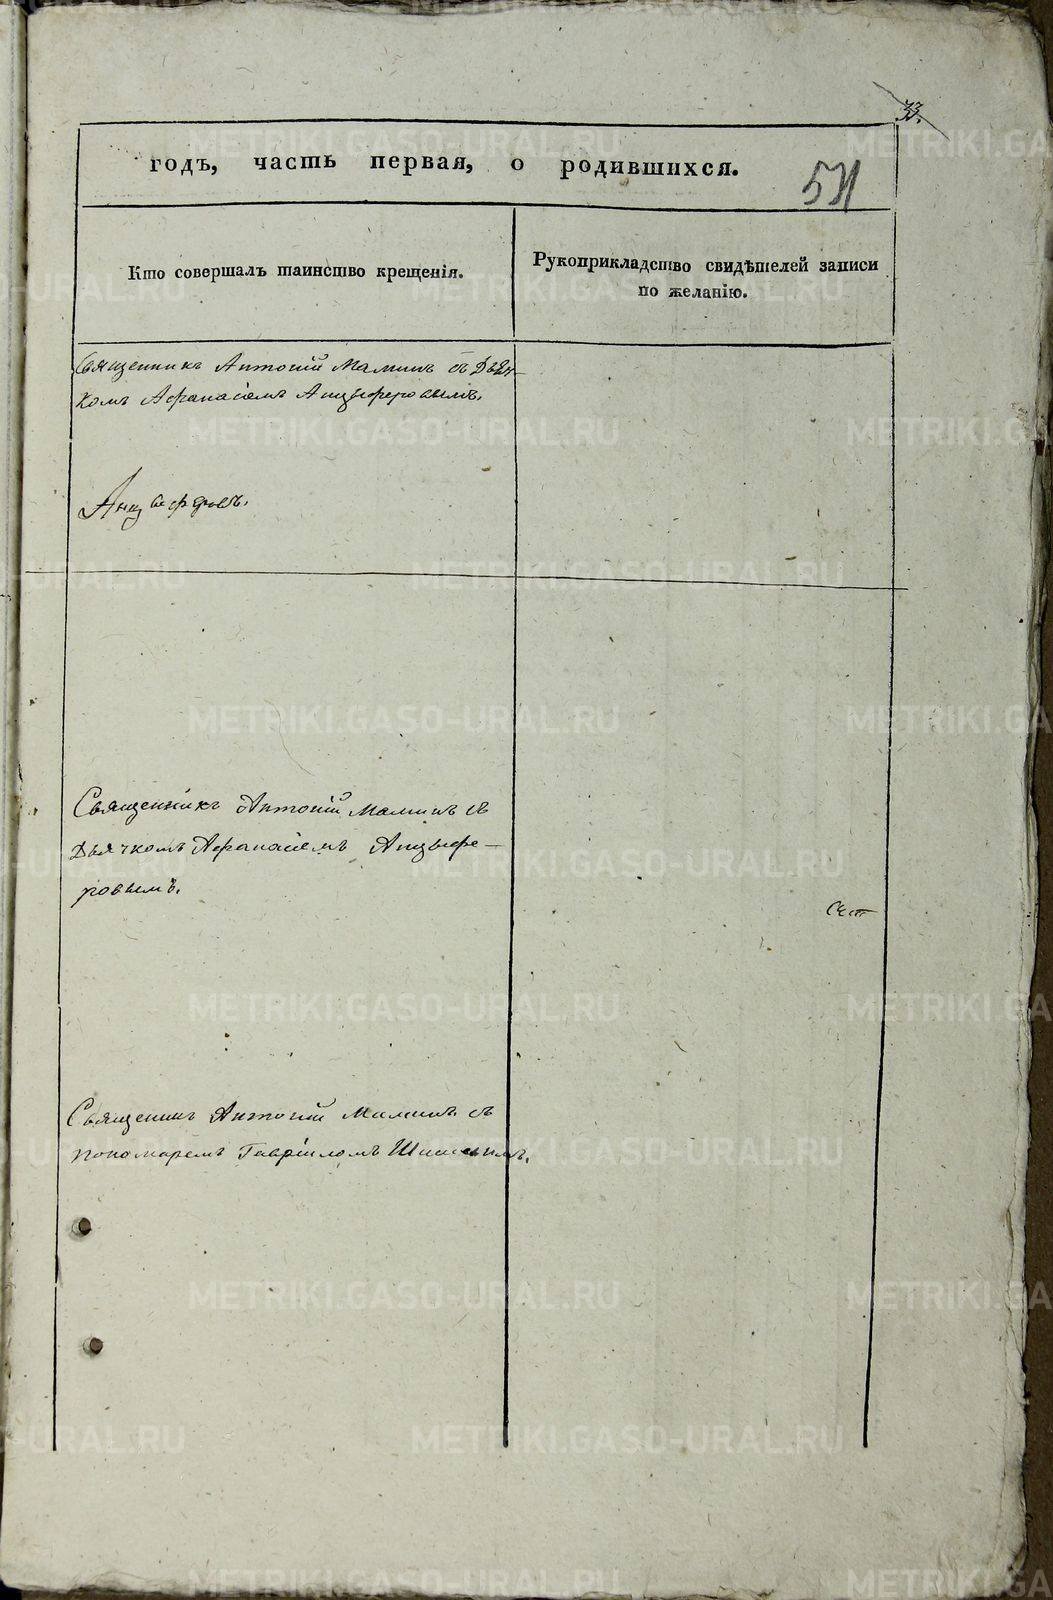 33.
годъ, часть первая, о родившихся.
Кто совершалъ таинство крещенія.
Рукоприкладство свидѣтелей записи
по желанію.
Священникъ Антоній Маминъ съ Дьяч-
комъ Афанасіемъ Анцыферовымъ.
Анцыферовъ.
Священникъ Антоній Маминъ съ
Дьячкомъ Афанасіемъ Анцыфе-
ровымъ.
Священникъ Антоній Маминъ съ
пономаремъ Гавріиломъ
METRIKI.GASO-URAL.RU